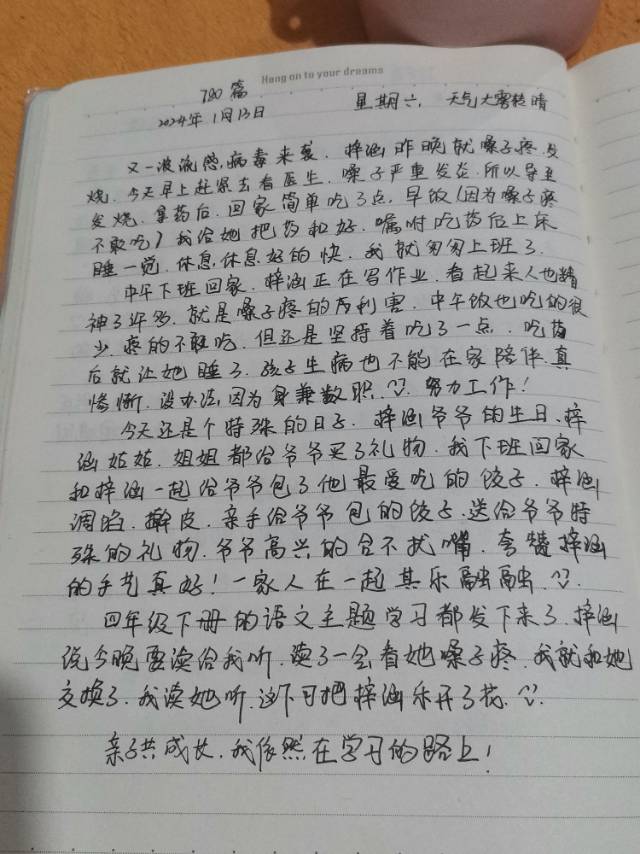 Hang on to your dreams
780篇
2024年1月13日 星期六, 天气大雾转晴
又一波流感病毒来袭. 梓涵昨晚就嗓子疼.发
烧. 今天早上赶紧去看医生. 嗓子严重发炎.所以导至
发烧. 拿药后. 回家简单吃了点. 早饭(因为嗓子疼
不敢吃)我给她把药和好. 嘱咐吃药后上床
睡一觉. 休息,休息好的快. 我就匆匆上班了.
中午下班回家. 梓涵正在写作业. 看起来人也精
神了许多. 就是嗓子疼的厉利害. 中午饭也吃的很
少. 疼的不敢吃. 但还是坚持着吃了一点. 吃药
后就让她睡了. 孩子生病也不能在家陪伴.真
惭惭. 没办法,因为身兼数职. 努力工作!
今天还是个特殊的日子. 梓涵爷爷的生日、梓
涵姑姑. 姐姐都给爷爷买了礼物. 我下班回家
和梓涵一起给爷爷包了他最爱吃的饺子. 梓涵
调馅. 擀皮. 亲手给爷爷包的饺子.送给爷爷特
殊的礼物. 爷爷高兴的合不拢嘴. 夸赞梓涵
的手艺真好! 一家人在一起其乐融融.
四年级下册的语文主题学习都发下来了. 梓涵
说今晚要读给我听. 读了一会看她嗓子疼. 我就和她
交换了. 我读她听.这下可把梓涵乐开了花.
亲子共成长. 我依然在学习的路上!